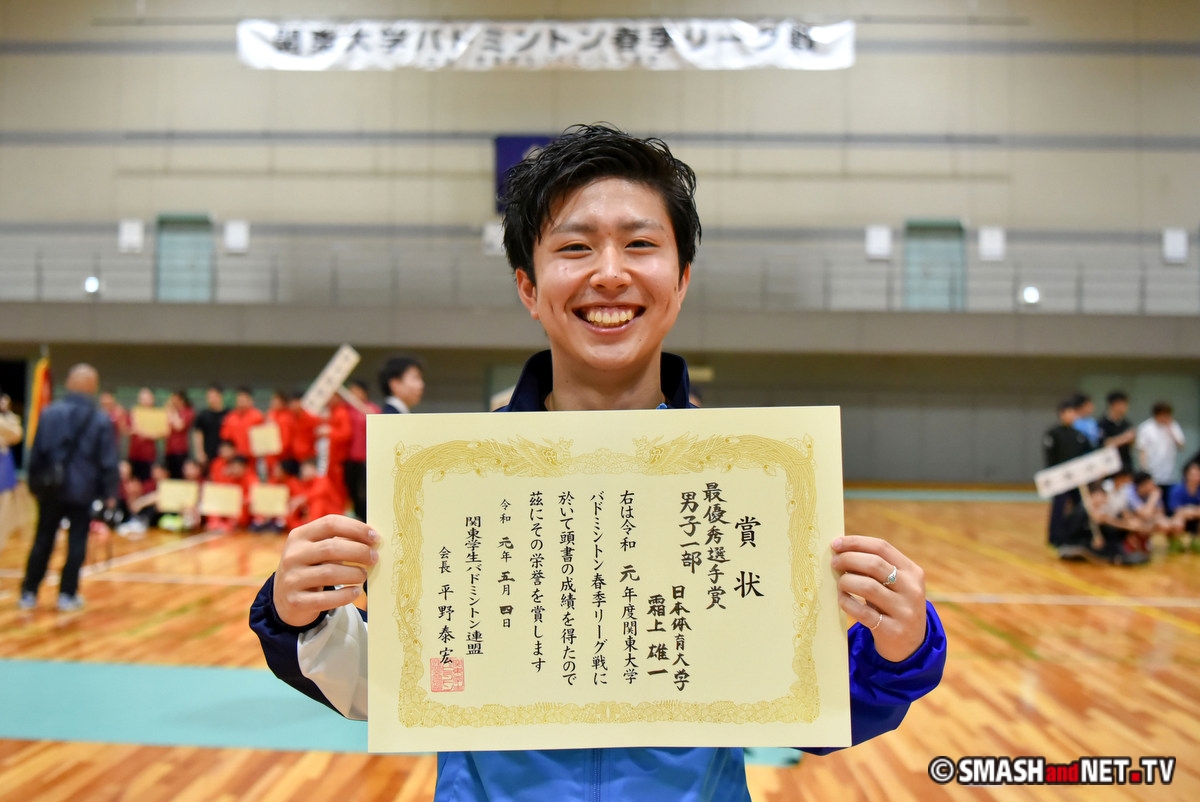 関東大学バドミントン春季リーグ戦
賞状
最優秀選手賞
男子一部
日本体育大学
霜上雄一
右は令和元年度関東大学
バドミントン春季リーグ戦に
於いて頭書の成績を得たので
茲にその栄誉を賞します
令和元年五月四日
関東学生バドミントン連盟
会長 平野泰宏
©SMASHandNET.TV